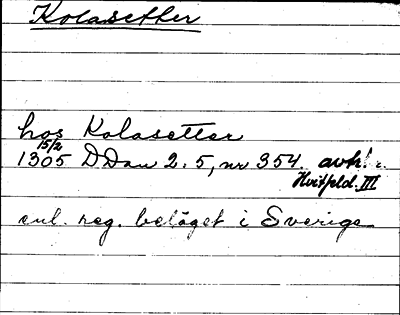 Kolasetter
hos Kolasetter
15/2
1305 DDan 2:5, nr 354. avh
Hvitfeld. III
enl. reg. beläget i Sverige